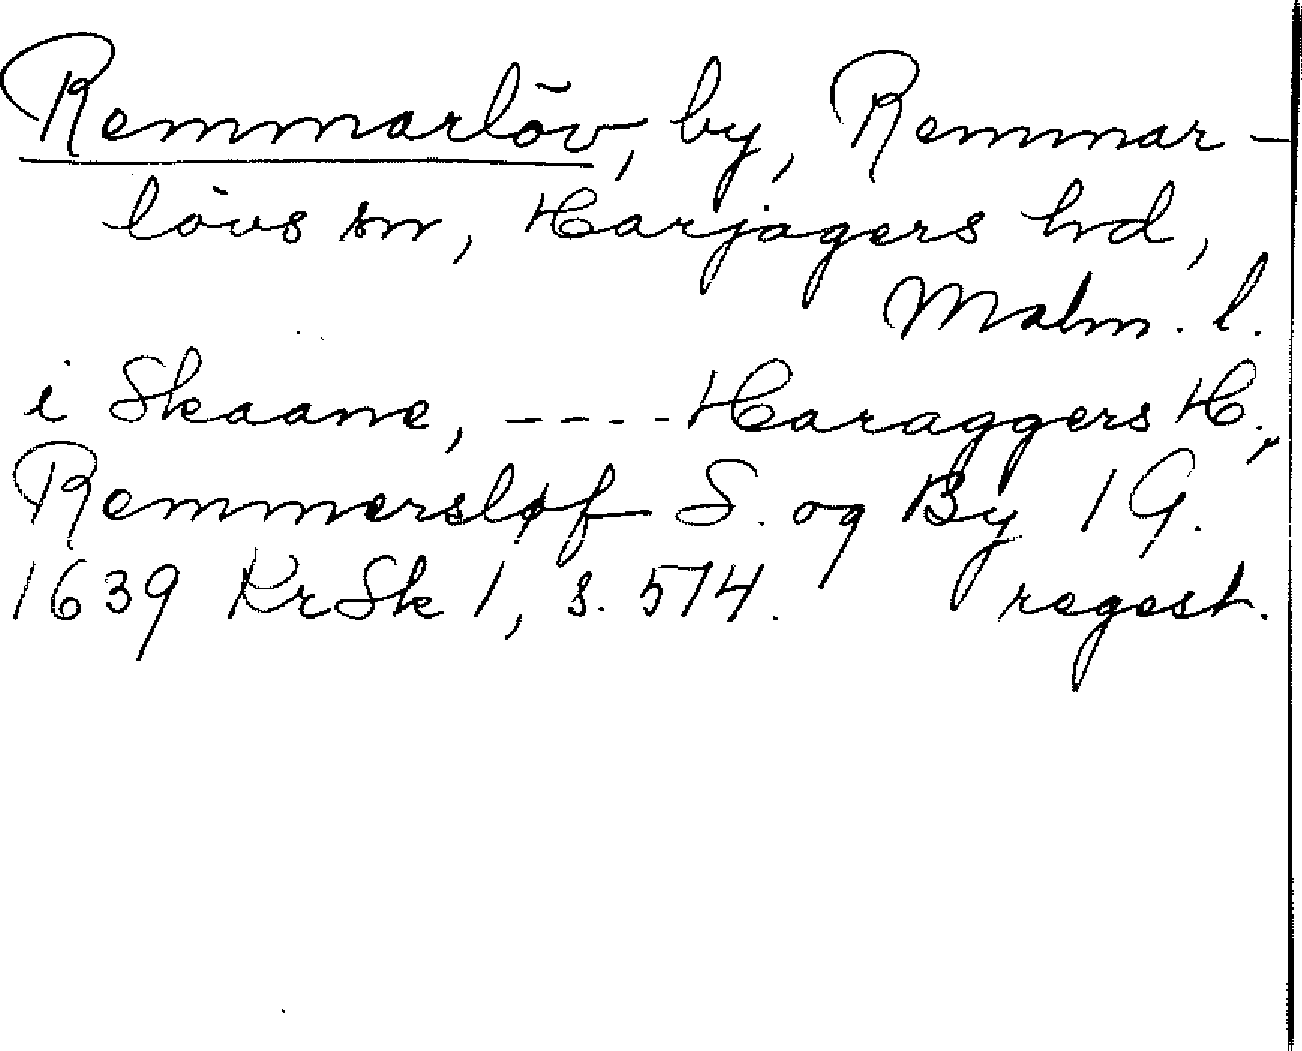 Remmarlöv, by, Remmar-
lövs sn, Harjagers hd,
Malm. l.
i Skaane, ---- Haraggers H.,
Remmersløf S. og By 1 G.
1639 KrSk 1, s. 574. regest.